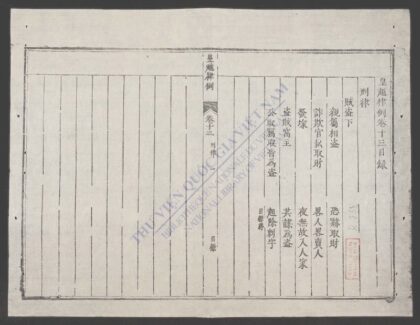 皇越律例卷十三目錄
刑律
賊盜下
親屬相盜 恐嚇取財
詐欺官私取財 畧人畧賣人
發塚 夜無故入人家
盜賊窩主 共謀為盜
公取竊取皆為盜 起除刺字
目錄終
皇越律例
卷十三 刑律
目錄
THƯ VIỆN QUỐC GIA VIỆT NAM
NATIONAL LIBRARY OF VIETNAM